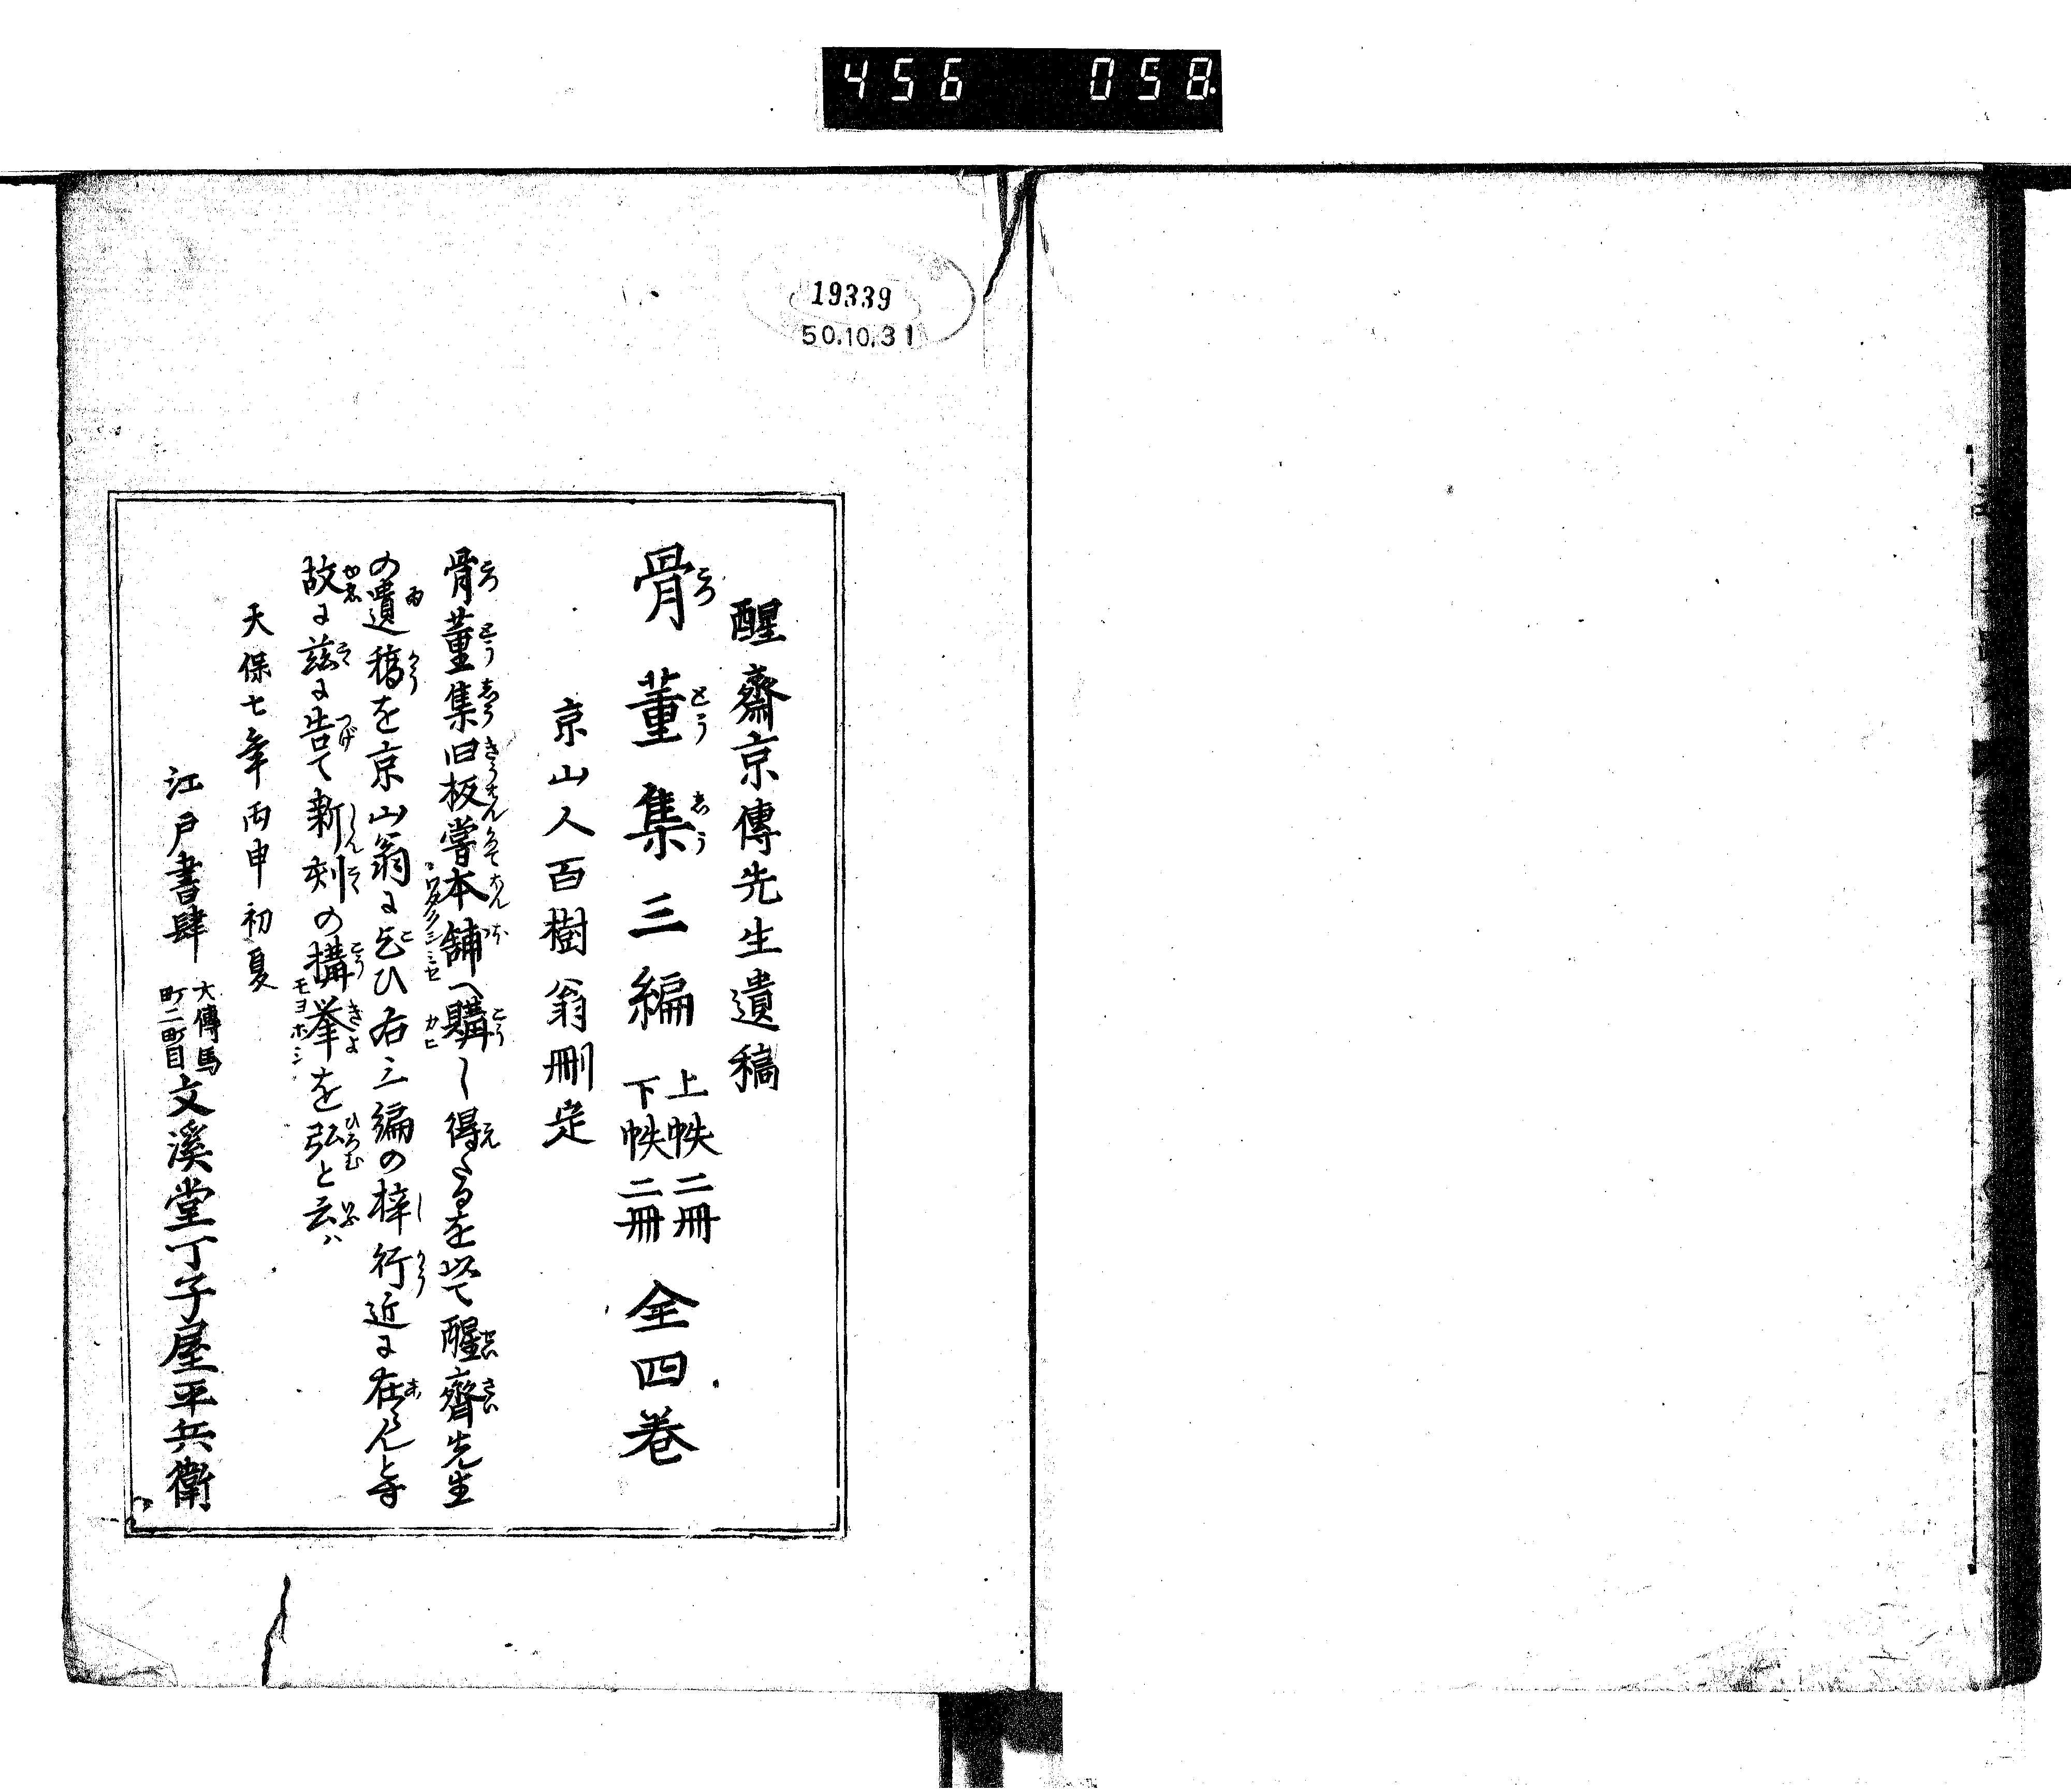 456 058.
19339
50.10.31
醒齋京傳先生遺稿
骨董集三編 上帙二冊 下帙二冊 全四巻
京山人百樹翁刪定
骨董集旧板嘗本舗へ購し得たるを以て醒齋先生
の遺稿を京山翁に乞ひ右三編の梓行近に在らんとす
故に茲に告て新刻の搆挙を弘と云ハ
天保七年丙申初夏
江戸書肆 大傳馬町二町目 文溪堂丁子屋平兵衛